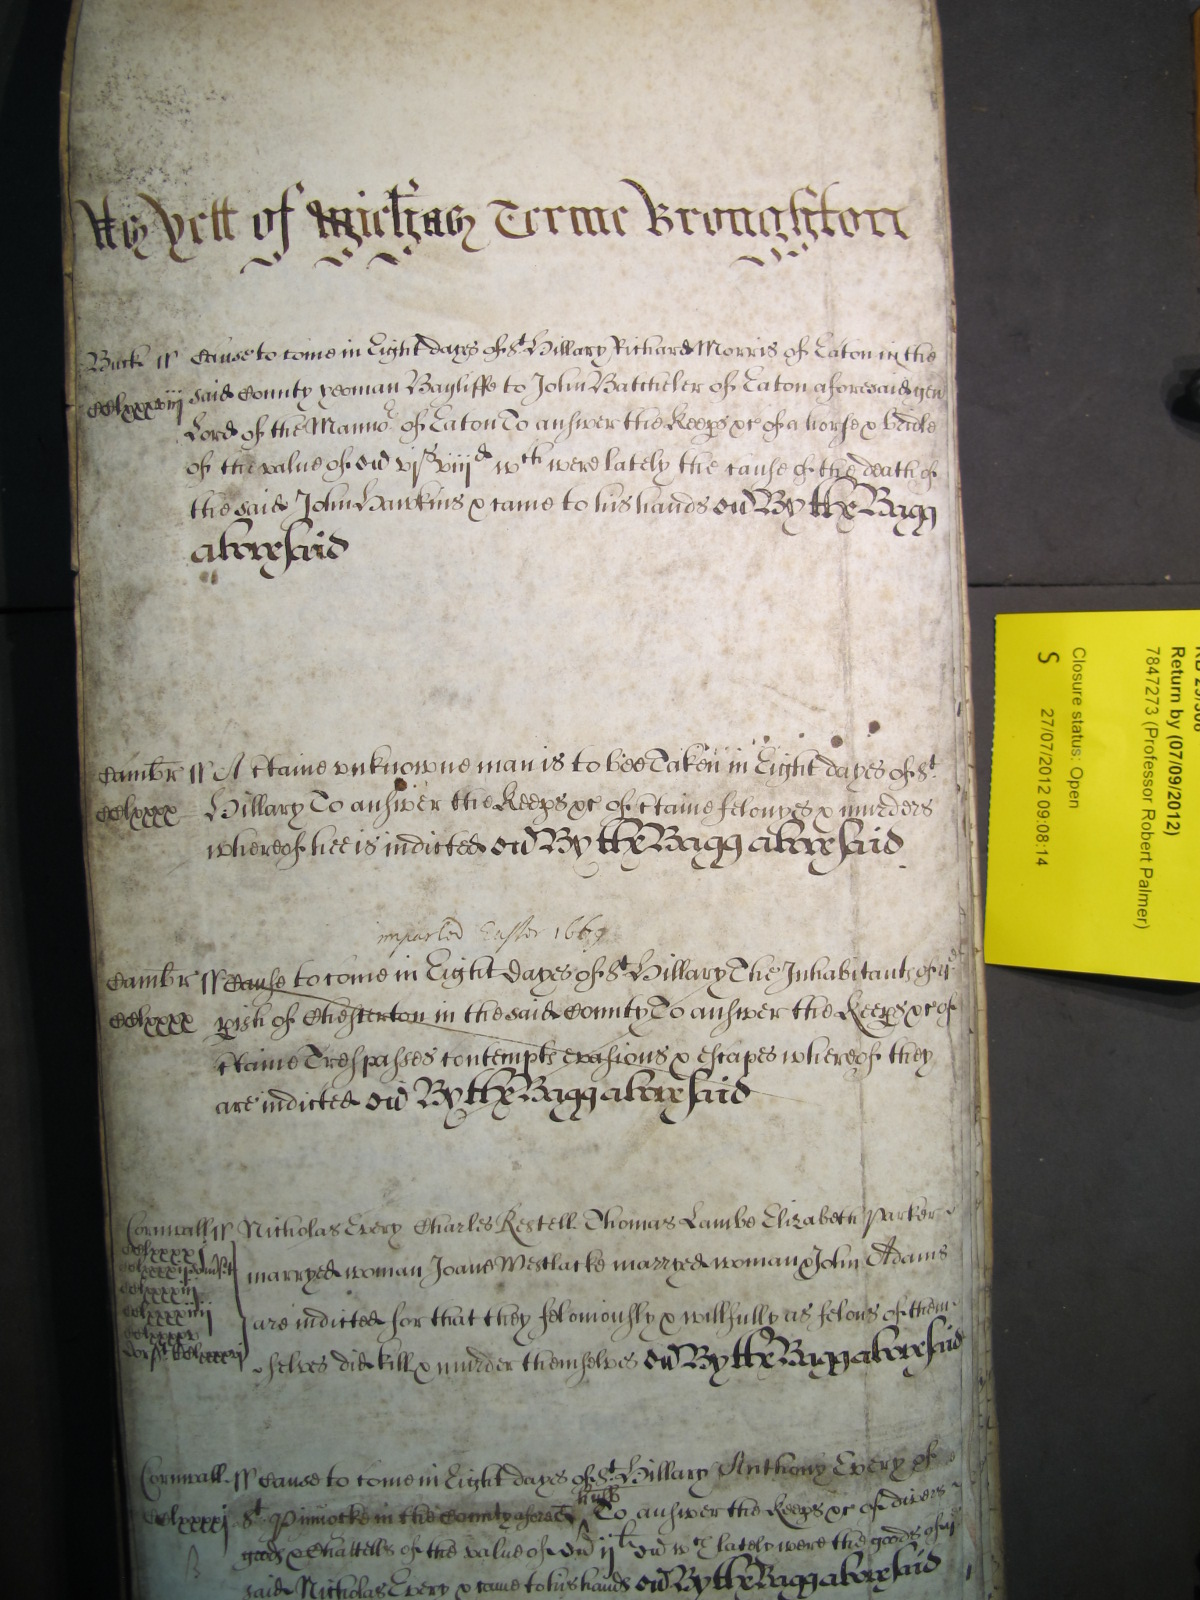 As yett of Michas Terme Broughton
Buck ss Cause to come in Eight dayes of St Hillary Richard Morris of Eaton in the
said County yeoman Bayliffe to John Batcheler of Eaton aforesaid gen
Lord of the Mannor of Eaton To answer the Keeps &c of a horse & bridle
of the value of vjs viijd wch were lately the cause of the death of
the said John Hawkins & came to his hands By the Bagg
aforesaid
Cambr ss A Ctaine unknowne man is to bee Taken in Eight dayes of St
CClxxxx Hillary To answer the Keeps &c of ctaine felonyes & murders
whereof hee is indicted By the Bagg aforesaid
imparled Easter
Cambr ss Cause to come in Eight dayes of St Hillary The Inhabitants of ye
CClxxxx pish of Chesterton in the said County To answer the Keeps &c of
ctaine Trespasses contempts evasions & escapes whereof they
are indicted By the Bagg aforesaid
Cornwall ss Nicholas Every Charles Restell Thomas Lambe Elizabeth Parker
marryed woman Joane Westlacke marryed woman & John Adams
are indicted for that they feloniously & willfully as felons of them
selves did kill & murder themselves By the Bagg aforesaid
Cornwall ss Cause to come in Eight dayes of St Hillary Anthony Every of
CClxxxxj St Pinnocke in the County aforesd To answer the Keeps &c of divers
goods & Chattells of the value of wch lately were the goods of ye
said Nicholas Every & came to his hands By the Bagg aforesaid
Return by (07/09/2012)
7847273 (Professor Robert Palmer)
Closure status: Open
S 27/07/2012 09:08:14